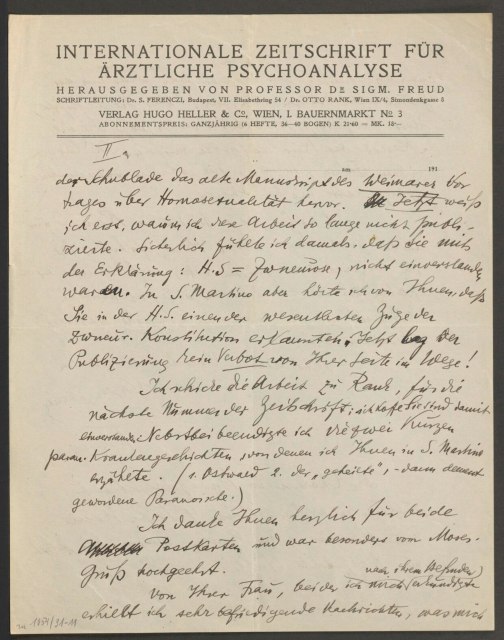 INTERNATIONALE ZEITSCHRIFT FÜR
ÄRZTLICHE PSYCHOANALYSE
HERAUSGEGEBEN VON PROFESSOR DR SIGM. FREUD
SCHRIFTLEITUNG: Dr. S. FERENCZI, Budapest, VII. Elisabethring 54 / Dr. OTTO RANK, Wien IX/4, Simondenkgasse 8
VERLAG HUGO HELLER & Co, WIEN, I. BAUERNMARKT No 3
ABONNEMENTSPREIS: GANZJÄHRIG (6 HEFTE, 36—40 BOGEN) K 21·60 = MK. 18·—
II
am 191
der Schublade das alte Manuskript des Weimarer Vor
trages über Homosexualität hervor. Jetzt weiß
ich erst, warum ich diese Arbeit so lange nicht publi-
zierte. Sicherlich fühlte ich damals, daß Sie mit
der Erklärung: H.S = Zwneurose, nicht einverstanden
waren. In S. Martino aber hörte ich von Ihnen, daß
Sie in der H.S. einen der wesentlichsten Züge der
Zwneur. Konstitution erkannten. Jetzt lag der
Publizierung kein Verbot von Ihrer Seite im Wege!
Ich schicke die Arbeit zu Rank, für die
nächste Nummer der Zeitschrift; ich hoffe Sie sind damit
einverstanden. Nebstbei beendigte ich die zwei kurzen
paran. Krankengeschichten, von denen ich Ihnen in S. Martino
erzählte. (1. Ostwald 2. der „geheilte", - dann dement
gewordene Paranoische.)
Ich danke Ihnen herzlich für beide
Postkarten und war besonders vom Moses-
Gruß hochgeehrt.
Von Ihrer Frau, bei der ich mich nach ihrem Befinden erkundigte
erhielt ich sehr befriedigende Nachrichten, was mich